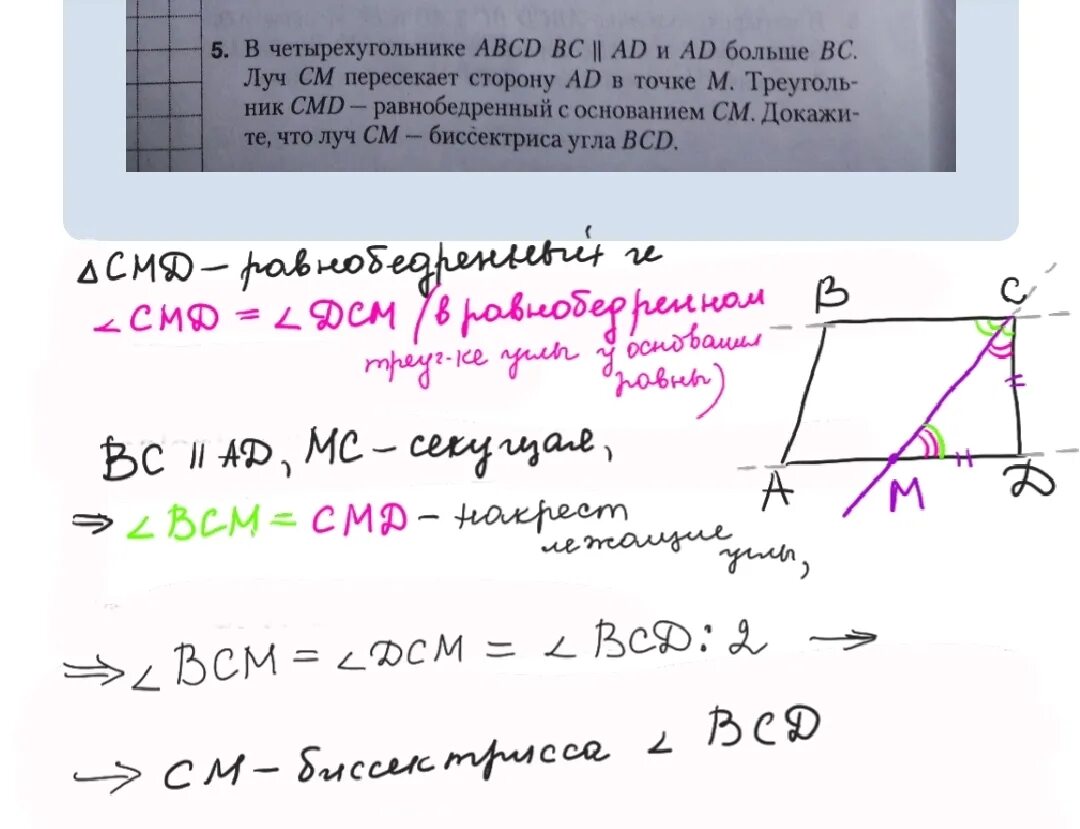 5. В четырехугольнике ABCD BC || AD и AD больше BC.
Луч CM пересекает сторону AD в точке M. Треуголь-
ник CMD — равнобедренный с основанием CM. Докажи-
те, что луч CM — биссектриса угла BCD.
△CMD – равнобедренный и
∠CMD = ∠DCM (в равнобедренном
треуг-ке углы у основания
равны)
B
C
BC || AD, MC – секущая,
A
M
D
⇒ ∠BCM = CMD – накрест
лежащие
углы,
⇒ ∠BCM = ∠DCM = ∠BCD : 2 →
→ CM – биссектрисса ∠ BCD